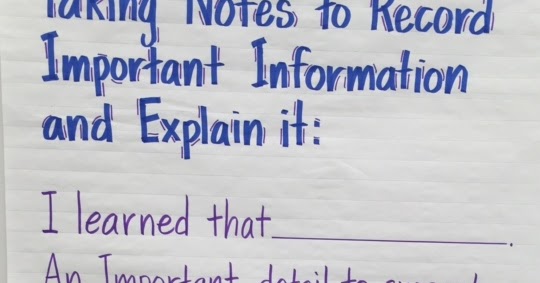 Taking Notes to Record
Important Information
and Explain it:
I learned that_______________.
An Important detail to